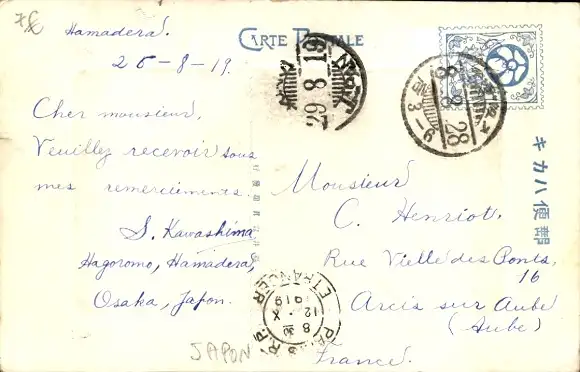 Hamadera.
25-8-19.
Cher monsieur,
Veuillez recevoir tous
mes remerciements.
S. Kawashima
Hagoromo, Hamadera,
Osaka, Japon.
JAPON
CARTE POSTALE
29 8 19
8 8 28
9-3
キカハ便郵
Monsieur
C. Henriot.
Rue Vielle des Ponts,
16
Arcis sur Aube
(Aube)
France.
PARIS R.P.
ETRANGER
8 30
12-X
919